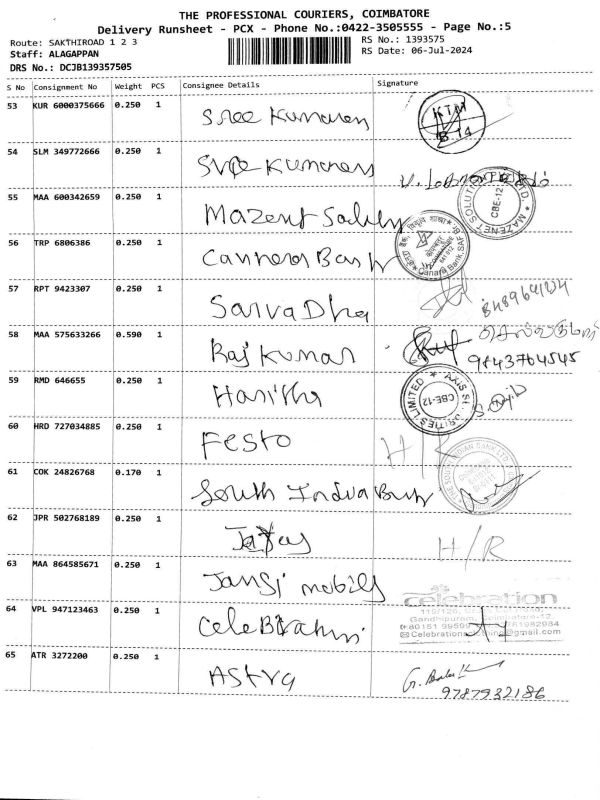 THE PROFESSIONAL COURIERS, COIMBATORE
Delivery Runsheet - PCX - Phone No.:0422-3505555 - Page No.:5
Route: SAKTHIROAD 1 2 3
RS No.: 1393575
Staff: ALAGAPPAN
RS Date: 06-Jul-2024
DRS No.: DCJB139357505
S No Consignment No Weight PCS Consignee Details Signature
53 KUR 6000375666 0.250 1 Sree Kumaran KTM B.14
54 SLM 349772666 0.250 1 Sree Kumaran
55 MAA 600342659 0.250 1 Mazenet Solution CBE-12
56 TRP 6806386 0.250 1 Cannera Bank Canara Bank
57 RPT 9423307 0.250 1 SarvaDha
58 MAA 575633266 0.590 1 Raj Kumar 9843764545
59 RMD 646655 0.250 1 Haritha AXIS LIMITED CBE-12
60 HRD 727034885 0.250 1 Festo H/R
61 COK 24826768 0.170 1 South India Bank
62 JPR 502768189 0.250 1 H/R
63 MAA 864585671 0.250 1 Jansi mobiles
celebration
64 VPL 947123463 0.250 1 CeleBrahni
Gandhipuram, Coimbatore-12
65 ATR 3272200 0.250 1 Astra
9787932186